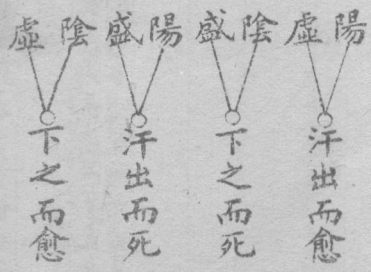 陽虛
汗出而愈
陰盛
下之而死
陽盛
汗出而死
陰虛
下之而愈